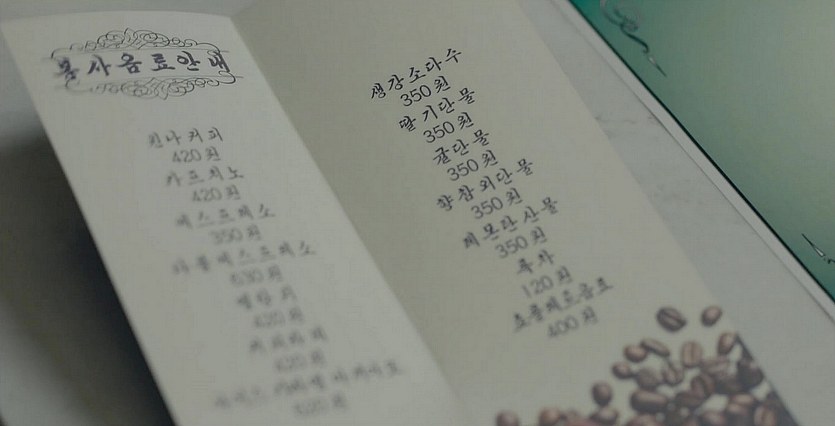 봉사음료안내
윈나커피
420원
카프치노
420원
에스프레소
350원
더블에스프레소
530원
420원
420원
생강소다수
350원
딸기단물
350원
귤단물
350원
향참외단물
350원
레몬탄산물
350원
록차
120원
400원